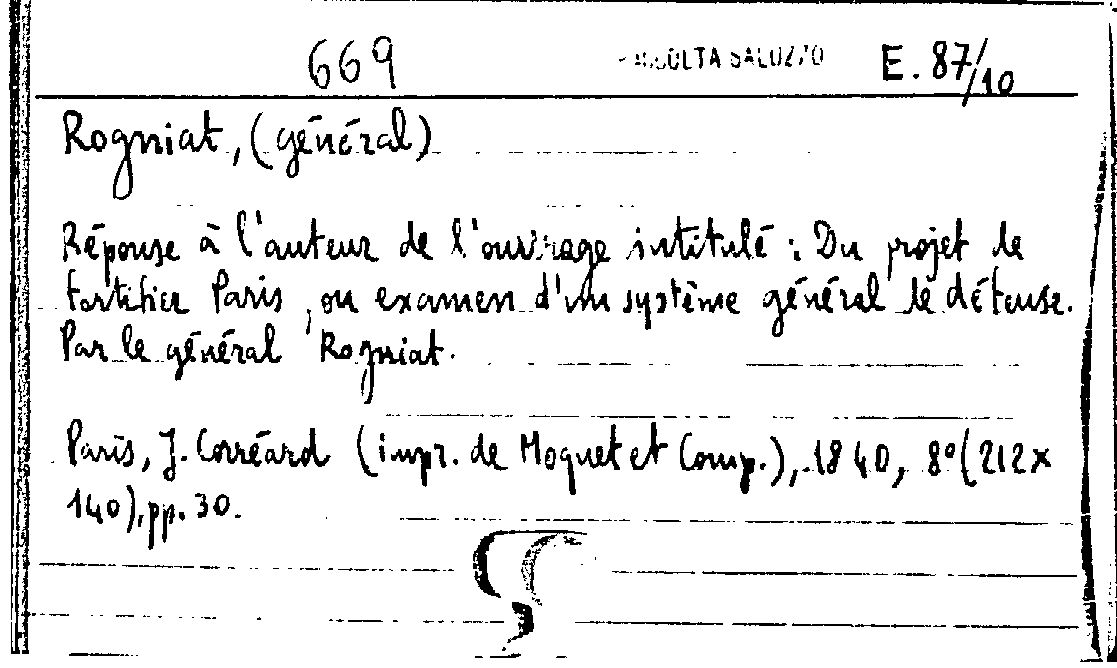 669 RACCOLTA SALUZZO E. 87/10
Rogniat, (général)
Réponse à l'auteur de l'ouvrage intitulé : Du projet de
fortifier Paris, ou examen d'un système général de défense.
Par le général Rogniat.
Paris, J. Corréard (impr. de Moquet et Comp.), 1840, 8º (212x
140), pp. 30.